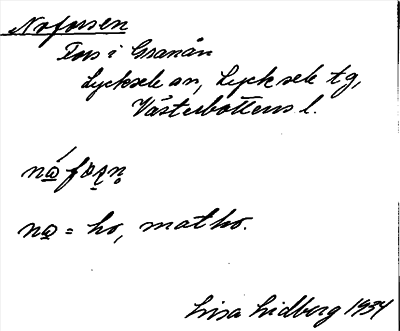 Noforsen
Fors i Granån
Lycksele sn, Lycksele tg,
Västerbottens l.
no = ho, matho.
Lisa Lidberg 1934